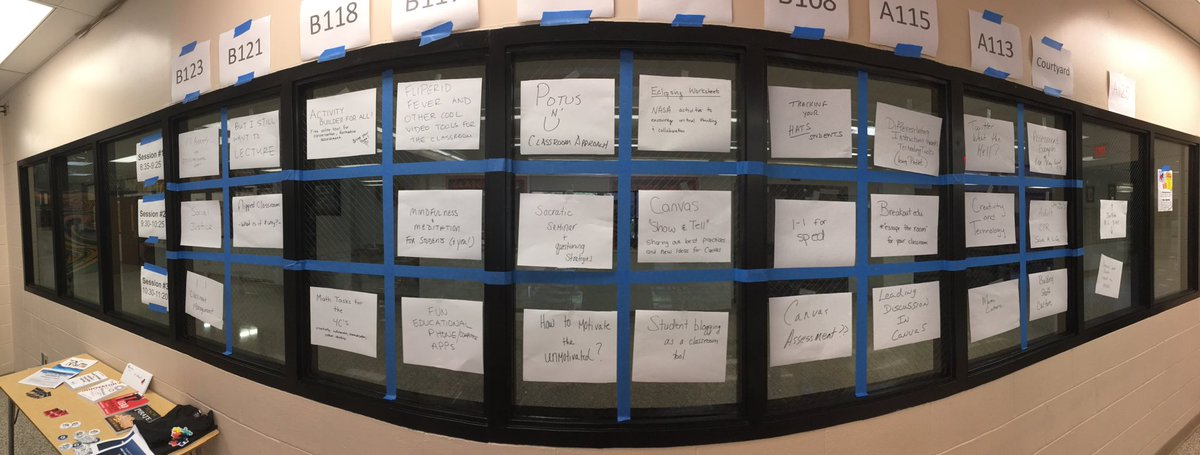 B123
B121
B118
B108
A115
A113
Courtyard
Session #1
8:35-9:25
BUT I STILL
WANT TO
LECTURE
ACTIVITY
BUILDER FOR ALL!
Free online tool for
FLIPGRID
FEVER AND
OTHER COOL
VIDEO TOOLS FOR
THE CLASSROOM
POTUS
N'
U
CLASSROOM APPROACH
Eclipsing Worksheets
NASA activities to
encourage critical thinking
& collaboration
TRACKING
YOUR
HATS STUDENTS
Differentiating
Technology Tools
Twitter
What the
Hell?
Assessment
Examples
Session #2
9:30-10:25
Social
Justice
Flipped Classroom
- What is it & Why?
MINDFULNESS
MEDITATION
FOR STUDENTS (& you!)
Socratic
Seminar
+
questioning
Strategies
Canvas
"Show & Tell"
Sharing our best practices
and New Ideas for Canvas
1-1 for
sped
Breakout edu
"escape the room"
for your classroom
Creativity
and
Technology
CPR
Save A Life
Session #3
10:30-11:20
1:1
Classroom
Management
Math Tasks for
the
4C's
FUN
EDUCATIONAL
PHONE/COMPUTER
APPS
How to Motivate
the
unmotivated?
Student blogging
as a classroom
tool
Canvas
Assessment??
LEADING
DISCUSSION
IN
CANVAS
Building
Staff
Culture